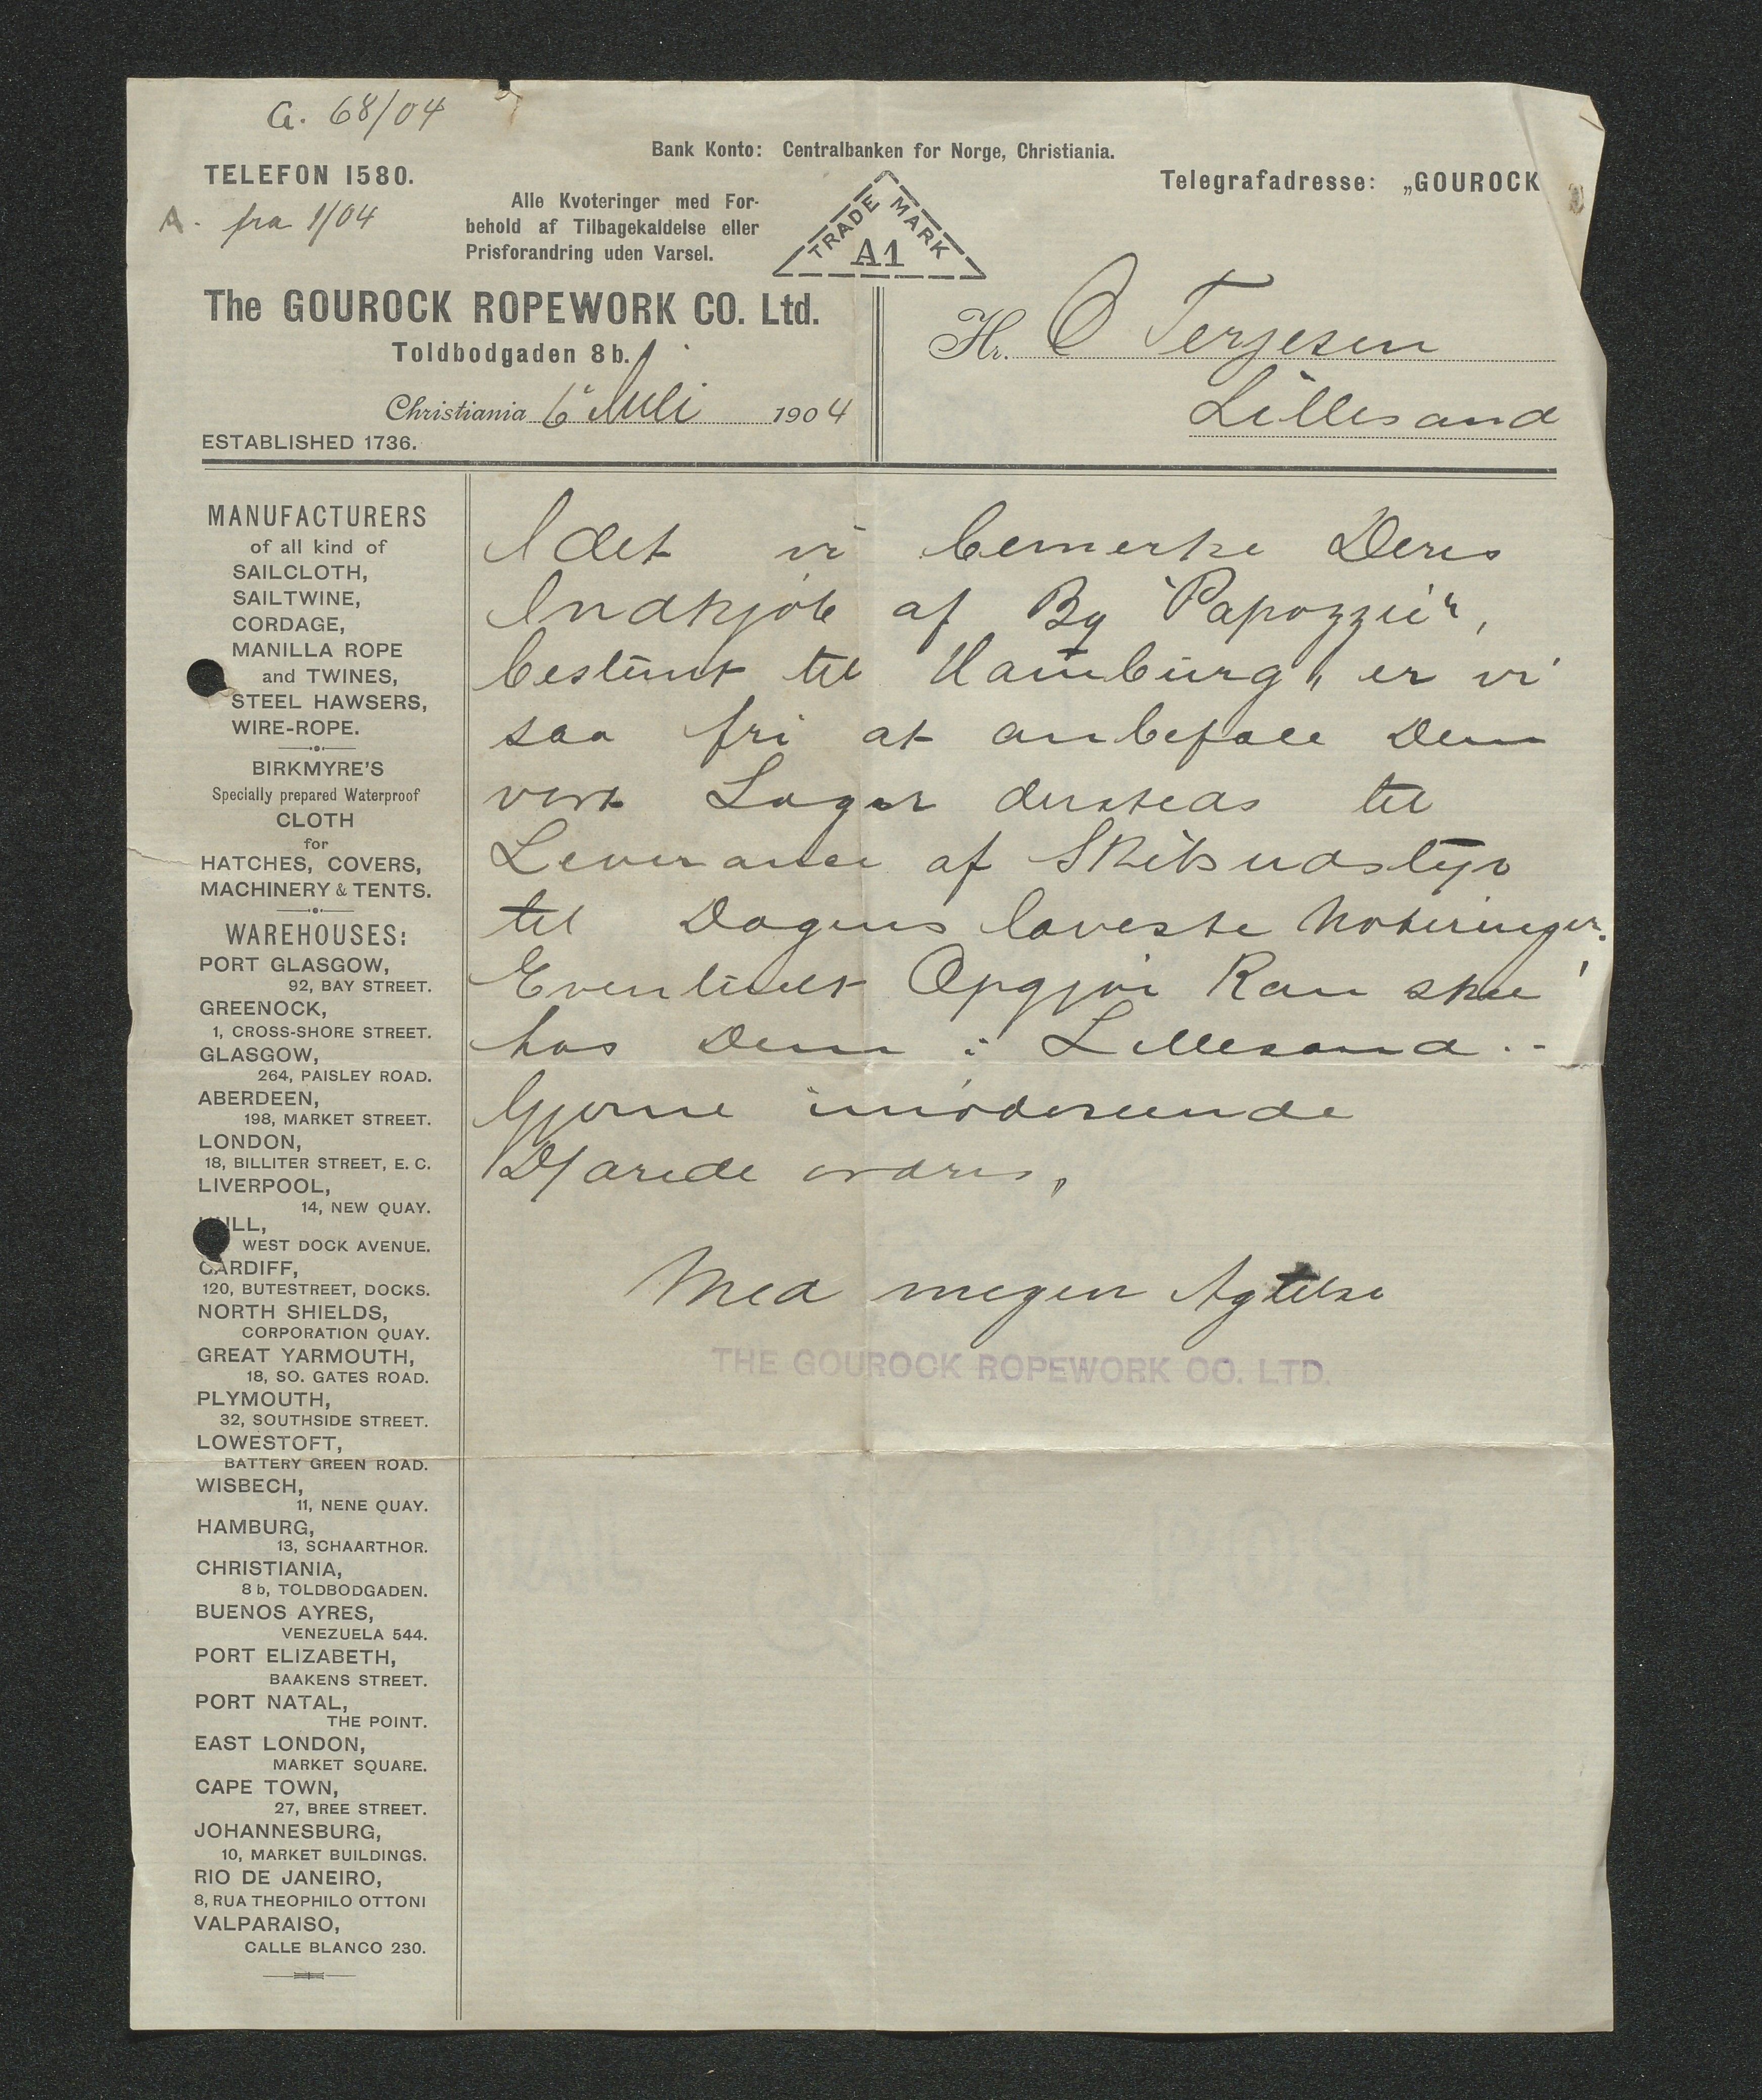 G. 68/04
Bank Konto: Centralbanken for Norge, Christiania.
TELEFON 1580.
Telegrafadresse: „GOUROCK
A. fra 1/04
Alle Kvoteringer med For-
behold af Tilbagekaldelse eller
Prisforandring uden Varsel.
TRADE MARK
A1
The GOUROCK ROPEWORK CO. Ltd.
Toldbodgaden 8b.
Hr. O Terjesen
Lillesand
Christiania 6 Juli 1904
ESTABLISHED 1736.
MANUFACTURERS
of all kind of
SAILCLOTH,
SAILTWINE,
CORDAGE,
MANILLA ROPE
and TWINES,
STEEL HAWSERS,
WIRE-ROPE.
BIRKMYRE'S
Specially prepared Waterproof
CLOTH
for
HATCHES, COVERS,
MACHINERY & TENTS.
WAREHOUSES:
PORT GLASGOW,
92, BAY STREET.
GREENOCK,
1, CROSS-SHORE STREET.
GLASGOW,
264, PAISLEY ROAD.
ABERDEEN,
198, MARKET STREET.
LONDON,
18, BILLITER STREET, E. C.
LIVERPOOL,
14, NEW QUAY.
HULL,
WEST DOCK AVENUE.
CARDIFF,
120, BUTESTREET, DOCKS.
NORTH SHIELDS,
CORPORATION QUAY.
GREAT YARMOUTH,
18, SO. GATES ROAD.
PLYMOUTH,
32, SOUTHSIDE STREET.
LOWESTOFT,
BATTERY GREEN ROAD.
WISBECH,
11, NENE QUAY.
HAMBURG,
13, SCHAARTHOR.
CHRISTIANIA,
8 b, TOLDBODGADEN.
BUENOS AYRES,
VENEZUELA 544.
PORT ELIZABETH,
BAAKENS STREET.
PORT NATAL,
THE POINT.
EAST LONDON,
MARKET SQUARE.
CAPE TOWN,
27, BREE STREET.
JOHANNESBURG,
10, MARKET BUILDINGS.
RIO DE JANEIRO,
8, RUA THEOPHILO OTTONI
VALPARAISO,
CALLE BLANCO 230.
Idet vi bemerke Deres
Indkjöb af Bg "Papozzei",
bestemt til Hamburg, er vi
saa fri at anbefale Dem
vort Lager dersteds til
Leverance af Skibsudstyr
til Dagens laveste Noteringer.
Eventuelt Opgjör Kan skee
hos Dem i Lillesand.-
Gjerne imödeseende
D/ ærede ordres,
Med megen Agtelse
THE GOUROCK ROPEWORK CO. LTD.